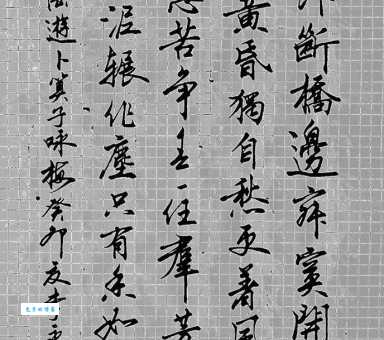 斷橋邊寂寞開
黃昏獨自愁更著風
意苦爭春一任羣芳
泥輾作塵只有香如
游卜算子咏梅癸卯夏